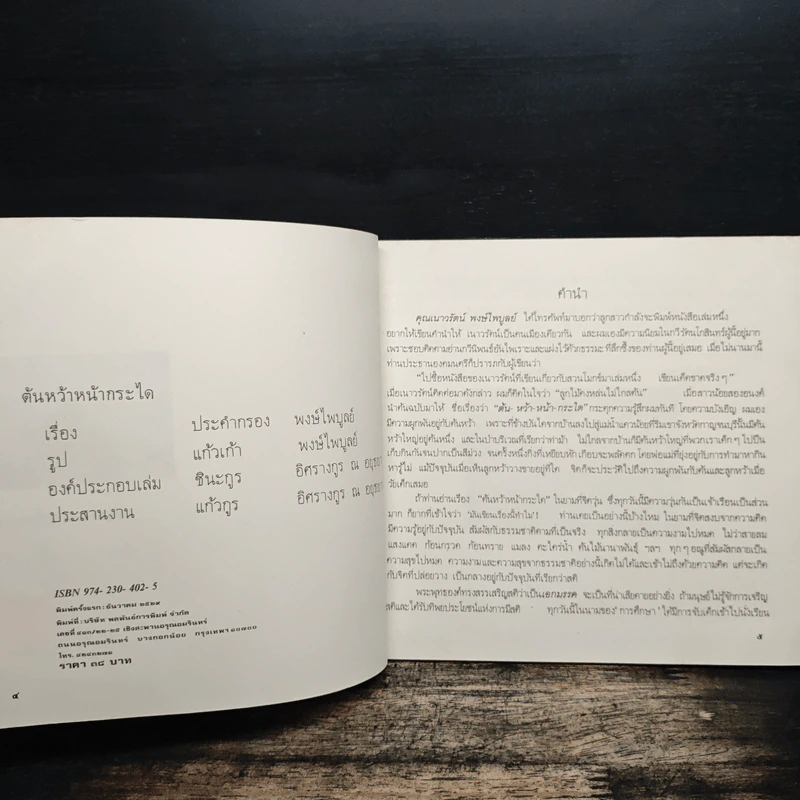 ต้นหว้าหน้ากระได
เรื่อง ประคำกรอง พงษ์ไพบูลย์
รูป แก้วเก้า พงษ์ไพบูลย์
องค์ประกอบเล่ม ชินะกูร อิศรางกูร ณ อยุธยา
ประสานงาน แก้วกูร อิศรางกูร ณ อยุธยา
ISBN 974-230-402-5
พิมพ์ครั้งแรก : ธันวาคม ๒๕๒๙
พิมพ์ที่ : บริษัท พลพันธ์การพิมพ์ จำกัด
เลขที่ ๔๑๓/๒๗-๒๘ เชิงสะพานอรุณอมรินทร์
ถนนอรุณอมรินทร์ บางกอกน้อย กรุงเทพฯ ๑๐๗๐๐
โทร.
ราคา ๓๘ บาท
๔
คำนำ
คุณเนาวรัตน์ พงษ์ไพบูลย์ ได้โทรศัพท์มาบอกว่าลูกสาวกำลังจะพิมพ์หนังสือเล่มหนึ่ง
อยากให้เขียนคำนำให้ เนาวรัตน์เป็นคนเมืองเดียวกัน และผมเองมีความนิยมในกวีรัตนโกสินทร์ผู้นี้อยู่มาก
เพราะชอบติดตามอ่านกวีนิพนธ์อันไพเราะและแฝงไว้ด้วยธรรมะที่ลึกซึ้งของท่านผู้นี้อยู่เสมอ เมื่อไม่นานมานี้
ท่านประธานองคมนตรีก็ปรารภกับผู้เขียนว่า
“ไปซื้อหนังสือของเนาวรัตน์ที่เขียนเกี่ยวกับสวนโมกข์มาเล่มหนึ่ง เขียนเด็ดขาดจริงๆ”
เมื่อเนาวรัตน์ติดต่อมาดังกล่าว ผมก็คิดในใจว่า “ลูกไม้คงหล่นไม่ไกลต้น” เมื่อสาวน้อยสองอนงค์
นำต้นฉบับมาให้ ชื่อเรื่องว่า “ต้น-หว้า-หน้า-กระได” กระตุกความรู้สึกผมทันที โดยความบังเอิญ ผมเอง
มีความผูกพันอยู่กับต้นหว้า เพราะที่ข้างบันไดจากบ้านลงไปสู่แม่น้ำแควน้อยที่ริมเขาจังหวัดกาญจนบุรีนั้นมีต้น
หว้าใหญ่อยู่ต้นหนึ่ง และในป่าบริเวณที่เรียกว่าท่าม้า ไม่ไกลจากบ้านก็มีต้นหว้าใหญ่ที่พวกเราเด็กๆ ไปปีน
เก็บกินกันจนปากเป็นสีม่วง จนครั้งหนึ่งกิ่งที่เหยียบหัก เกือบจะพลัดตก โดยพ่อแม่ที่ยุ่งอยู่กับการทำมาหากิน
หารู้ไม่ แม้ปัจจุบันเมื่อเห็นลูกหว้าวางขายอยู่ที่ใด จิตก็จะประหวัดไปถึงความผูกพันกับต้นและลูกหว้าเมื่อ
วัยเด็กเสมอ
ถ้าท่านอ่านเรื่อง “ต้นหว้าหน้ากระได” ในยามที่จิตวุ่น ซึ่งทุกวันนี้มีความวุ่นกันเป็นเจ้าเรือนเป็นส่วน
มาก ก็ยากที่เข้าใจว่า ‘มันเขียนเรื่องนี้ทำไม’! ท่านเคยเป็นอย่างนี้บ้างไหม ในยามที่จิตสงบจากความคิด
มีความรู้อยู่กับปัจจุบัน สัมผัสกับธรรมชาติตามที่เป็นจริง ทุกสิ่งกลายเป็นความงามไปหมด ไม่ว่าสายลม
แสงแดด ก้อนกรวด ก้อนทราย แมลง ตะไคร่น้ำ ต้นไม้นานาพันธุ์ ฯลฯ ทุกๆ อณูที่สัมผัสกลายเป็น
ความสุขไปหมด ความงามและความสุขจากธรรมชาติอย่างนี้เกิดไม่ได้และเข้าไม่ถึงด้วยความคิด แต่จะเกิด
กับจิตที่ปล่อยวาง เป็นกลางอยู่กับปัจจุบันที่เรียกว่าสติ
พระพุทธองค์ทรงสรรเสริญสติว่าเป็นเอกมรรค จะเป็นที่น่าเสียดายอย่างยิ่ง ถ้ามนุษย์ไม่รู้จักการเจริญ
สติและได้รับทิพยประโยชน์แห่งการมีสติ ทุกวันนี้ในนามของ ‘การศึกษา’ ได้มีการจับเด็กเข้าไปนั่งเรียน
๕